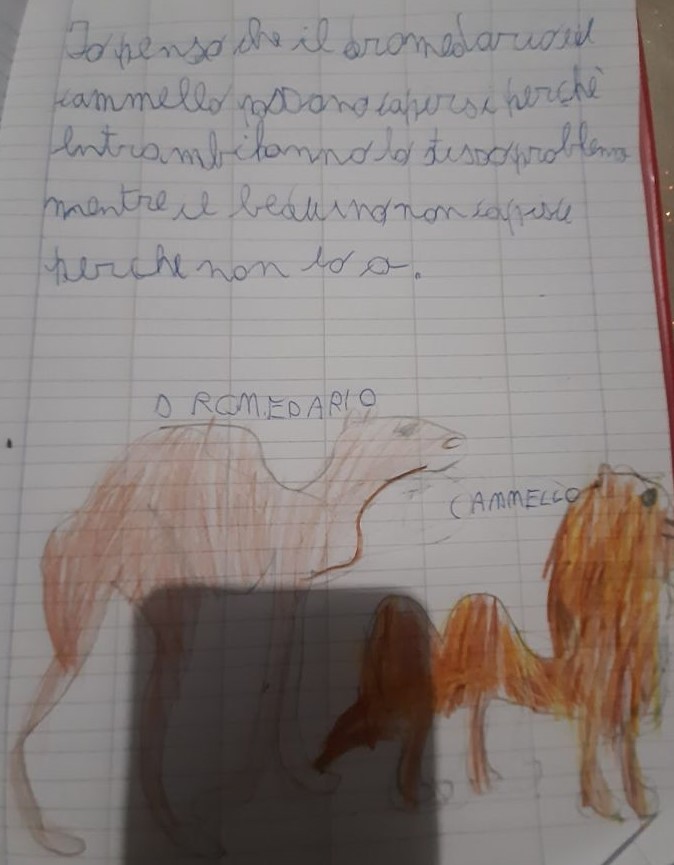 Io penso che il dromedario e il
cammello possano capirsi perchè
entrambi hanno lo stesso problema
mentre il beduino non capisce
perche non lo a.
DROMEDARIO
CAMMELLO